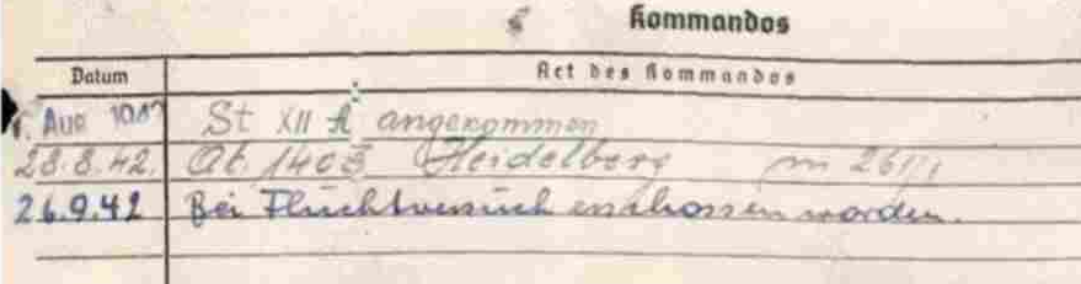 Kommandos
Datum Art des Kommandos
Aug 1942 St XII A angekommen
28.8.42. At. 1405 Heidelberg
26.9.42 Bei Fluchtversuch erschossen worden.